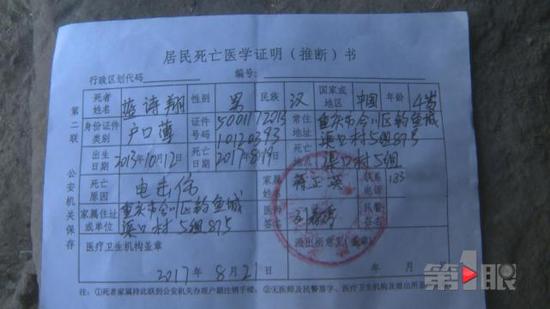 居民死亡医学证明（推断）书
行政区划代码 编号:
死者姓名 蓝诗翔 性别 男 民族 汉 国家或地区 中国 年龄 4岁
身份证件类别 户口薄 证件号码 常住地址 重庆市合川区钓鱼城渠口村5组87号
出生日期 2013年10月12日 死亡日期 2017 8月19 死亡地点 渠口村5组
死亡原因 电击伤 家属姓名 联系电话 183
家属住址或单位 重庆市合川区钓鱼城渠口村5组87号 医师签名 民警签名
医疗卫生机构盖章 派出所意见（盖章）
2017年 8月21日 年 月 日
注：①死者家属持此联到公安机关办理户籍注销手续；②无医师及民警签字、医疗卫生机构及派出所
第二联 公安机关保存
第1眼